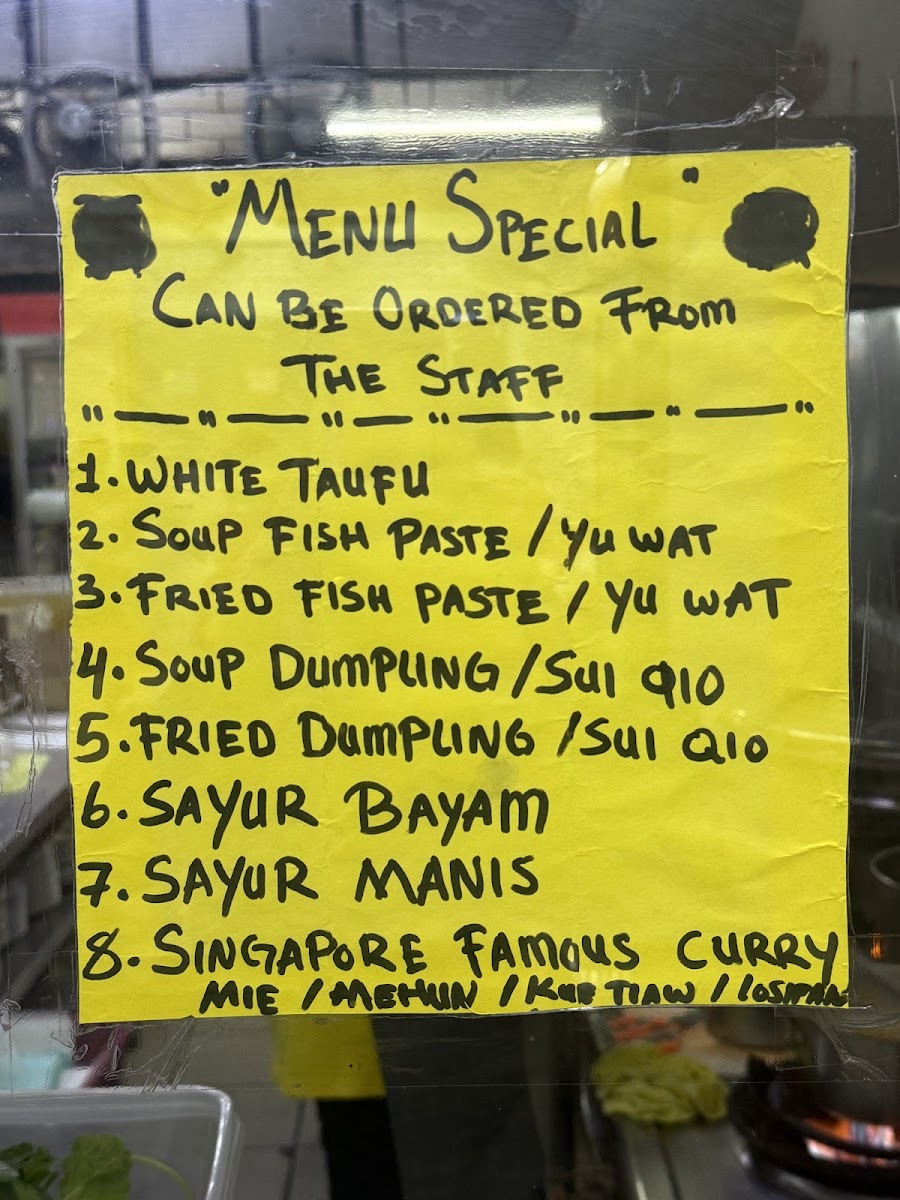 "MENU SPECIAL"
CAN BE ORDERED FROM
THE STAFF
1. WHITE TAUFU
2. SOUP FISH PASTE / YU WAT
3. FRIED FISH PASTE / YU WAT
4. SOUP DUMPLING / SUI QIO
5. FRIED DUMPLING / SUI QIO
6. SAYUR BAYAM
7. SAYUR MANIS
8. SINGAPORE FAMOUS CURRY
MIE / MEHUN / KUE TIAW /